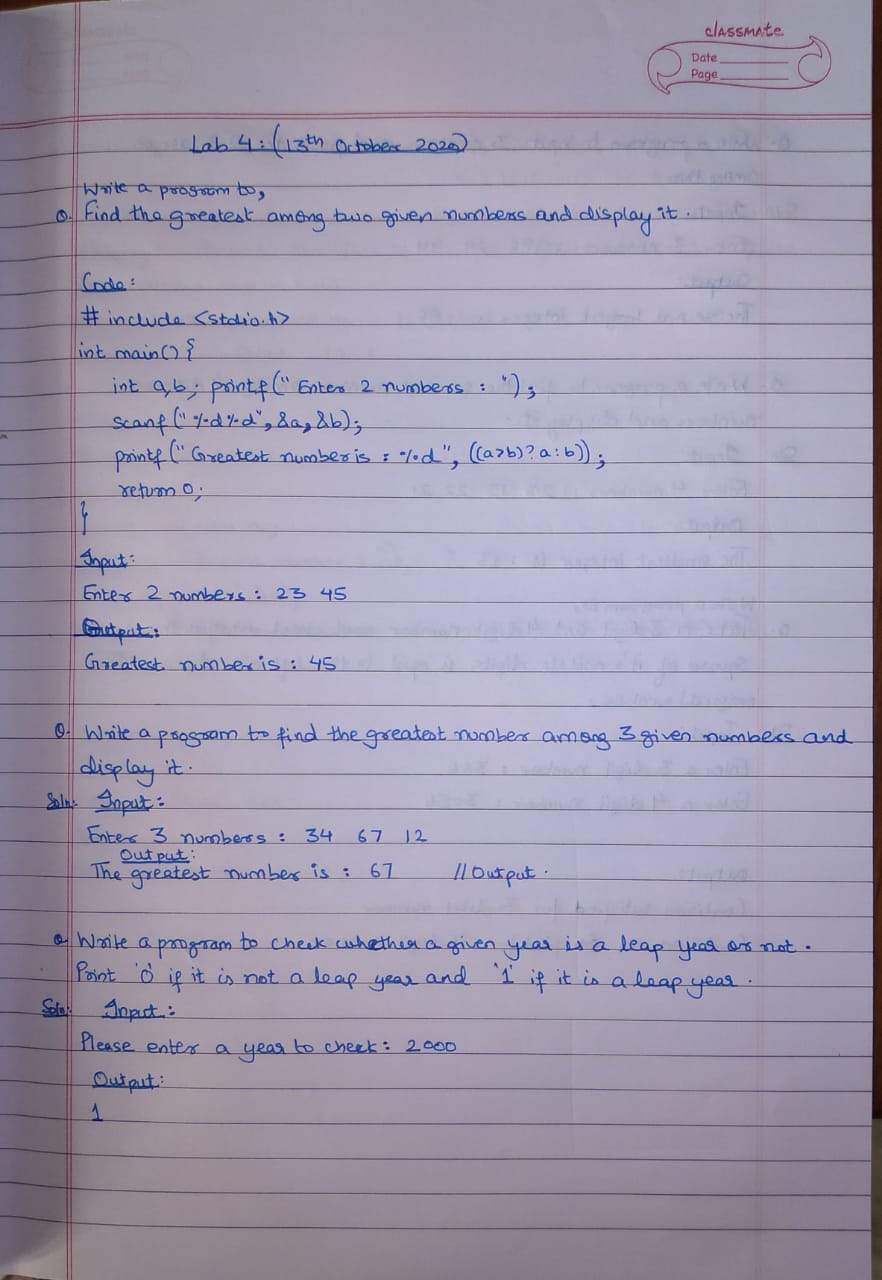 classmate
Date
Page
Lab 4: (13th October 2020)
Write a program to,
Q. Find the greatest among two given numbers and display it.
Code:
# include <stdio.h>
int main() {
int a,b; printf(" Enter 2 numbers : ");
scanf("%d%d", &a, &b);
printf(" Greatest number is : %d", ((a>b)?a:b));
return 0;
}
Input:
Enter 2 numbers : 23 45
Output:
Greatest number is : 45
Q. Write a program to find the greatest number among 3 given numbers and
display it.
Soln: Input:
Enter 3 numbers : 34 67 12
Output:
The greatest number is : 67 //Output.
Q. Write a program to check whether a given year is a leap year or not.
Print '0' if it is not a leap year and '1' if it is a leap year.
Soln: Input:
Please enter a year to check: 2000
Output:
1